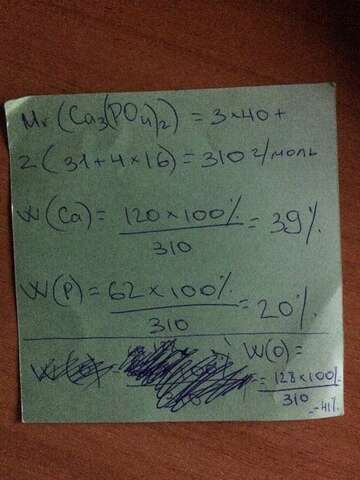 Mr(Ca3(PO4)2) = 3×40+
2(31+4×16)=310 г/моль
W(Ca)= 120×100% = 39%.
310
W(P)= 62×100% = 20%.
310
W(O)=
= 128×100%
310
= 41%